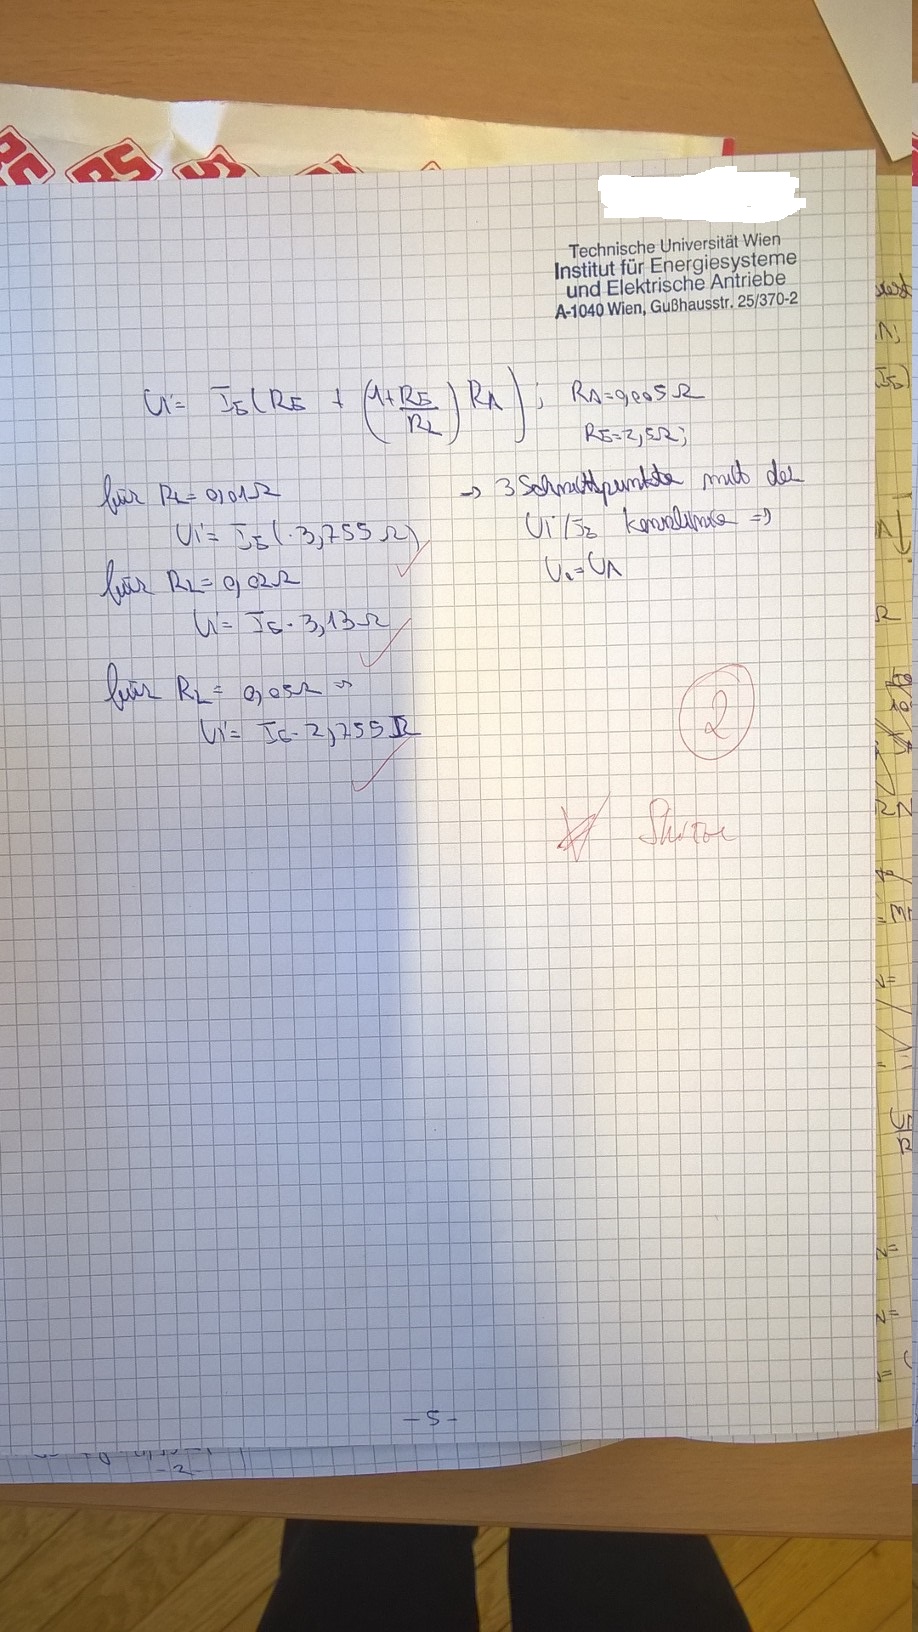 Technische Universität Wien
Institut für Energiesysteme
und Elektrische Antriebe
A-1040 Wien, Gußhausstr. 25/370-2
Ui = I_E (R_E + (1 + R_E/R_L) R_A) ; R_A = 0,005 Ω
R_E = 2,5 Ω ;
für R_L = 0,01 Ω
Ui = I_E ( · 3,755 Ω)
für R_L = 0,02 Ω
Ui = I_E · 3,13 Ω
für R_L = 0,05 Ω ⇒
Ui = I_E · 2,755 Ω
→ 3 Schnittpunkte mit der
Ui / I_E Kennlinie ⇒
= U_A
2
- 5 -
- 2 -